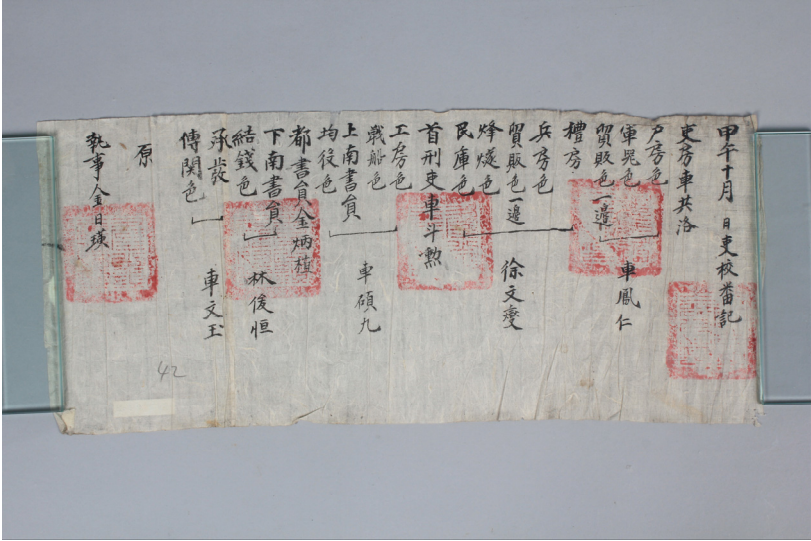 甲午十月 日吏校番記
吏房車共洛
戶房色
軍器色
貿販色一邊
車鳳仁
禮房
兵房色
貿販色一邊
烽燧色
民庫色
徐文燮
首刑吏車斗勲
工房色
戰船色
上南書員
均役色
車碩九
都書員金炳植
下南書員
結錢色
林俊恒
承發
傳関色
車文玉
原
執事金日瑛
42